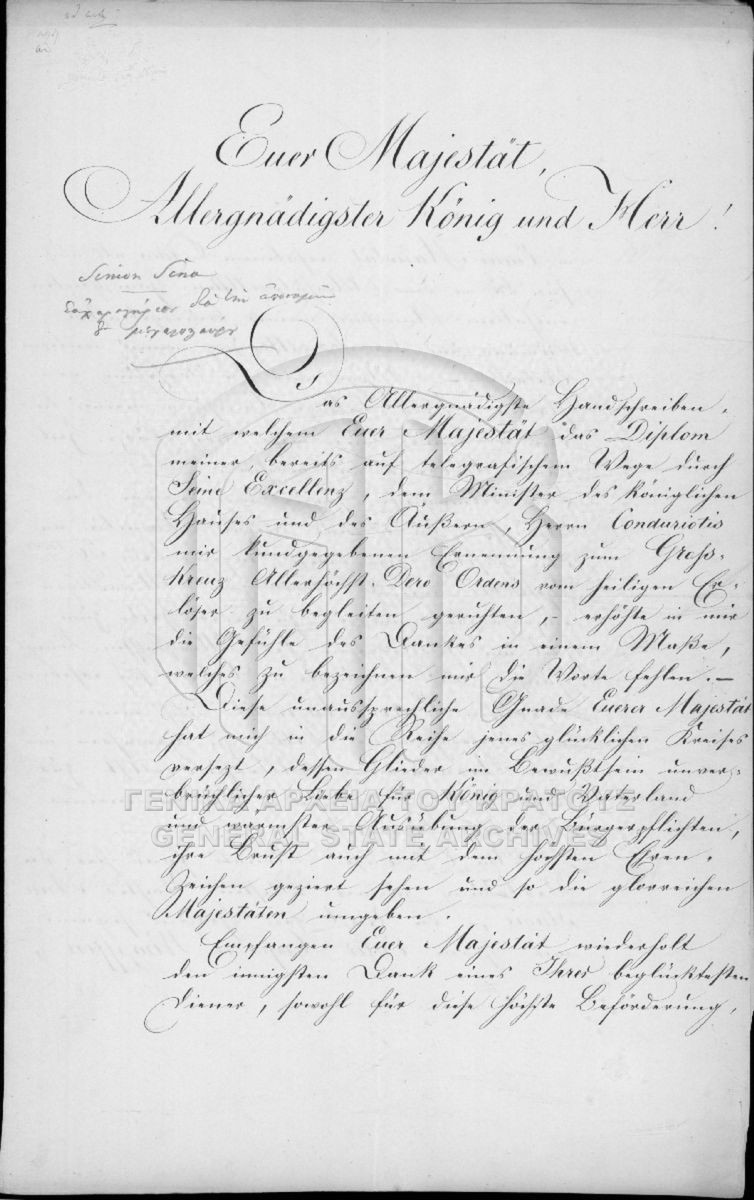 Euer Majestät,
Allergnädigster König und Herr!
Simon Sina
διὰ τὴν ἀπονομὴν
μεγαλοσταύρου
Das Allergnädigste Handschreiben,
mit welchem Euer Majestät das Diplom
meiner, bereits auf telegrafischem Wege durch
Seine Excellenz, dem Minister des königlichen
Hauses und des Äußern, Herrn Conduriotis
mir kundgegebenen Ernennung zum Groß-
Kreuz Allerhöchst-Dero Ordens vom heiligen Er-
löser zu begleiten geruhten, – erhöhte in mir
die Gefühle des Dankes in einem Maße,
welches zu bezeichnen mir die Worte fehlen. –
Diese unaussprechliche Gnade Euerer Majestät
hat mich in die Reihe jenes glücklichen Kreises
versezt, dessen Glieder im Bewußtsein unver-
brüchlicher Liebe für König und Vaterland
und warmster Ausübung der Bürgerpflichten,
ihre Brust auch mit dem höchsten Ehren-
Zeichen geziert sehen und so die glorreichen
Majestäten umgeben.
Empfangen Euer Majestät wiederholt
den innigsten Dank eines Ihrer beglücktesten
Diener, sowohl für diese höchste Beförderung,
ΓΕΝΙΚΑ ΑΡΧΕΙΑ ΤΟΥ ΚΡΑΤΟΥΣ
GENERAL STATE ARCHIVES